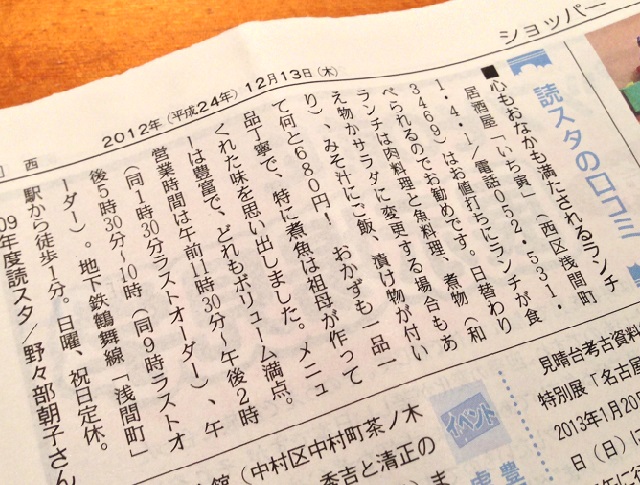 ショッパー
2012年(平成24年) 12月13日(木)
西
読スタの口コミ
■心もおなかも満たされるランチ
居酒屋「いち寅」(西区浅間町
1・4・1/電話052・531・
3469)はお値打ちにランチが食
べられるのでお勧めです。日替わり
ランチは肉料理と魚料理、煮物(和
え物かサラダに変更する場合もあ
り)、みそ汁にご飯、漬け物が付い
て何と680円! おかずも一品一
品丁寧で、特に煮魚は祖母が作って
くれた味を思い出しました。メニュ
ーは豊富で、どれもボリューム満点。
営業時間は午前11時30分〜午後2時
(同1時30分ラストオーダー)、午
後5時30分〜10時(同9時ラストオ
ーダー)。地下鉄鶴舞線「浅間町」
駅から徒歩1分。日曜、祝日定休。
09年度読スタ/野々部朝子さん
見晴台考古資料
特別展「名古屋
2013年1月20
日(日)に
イベント
豊
館(中村区中村町茶ノ木
秀吉と清正の